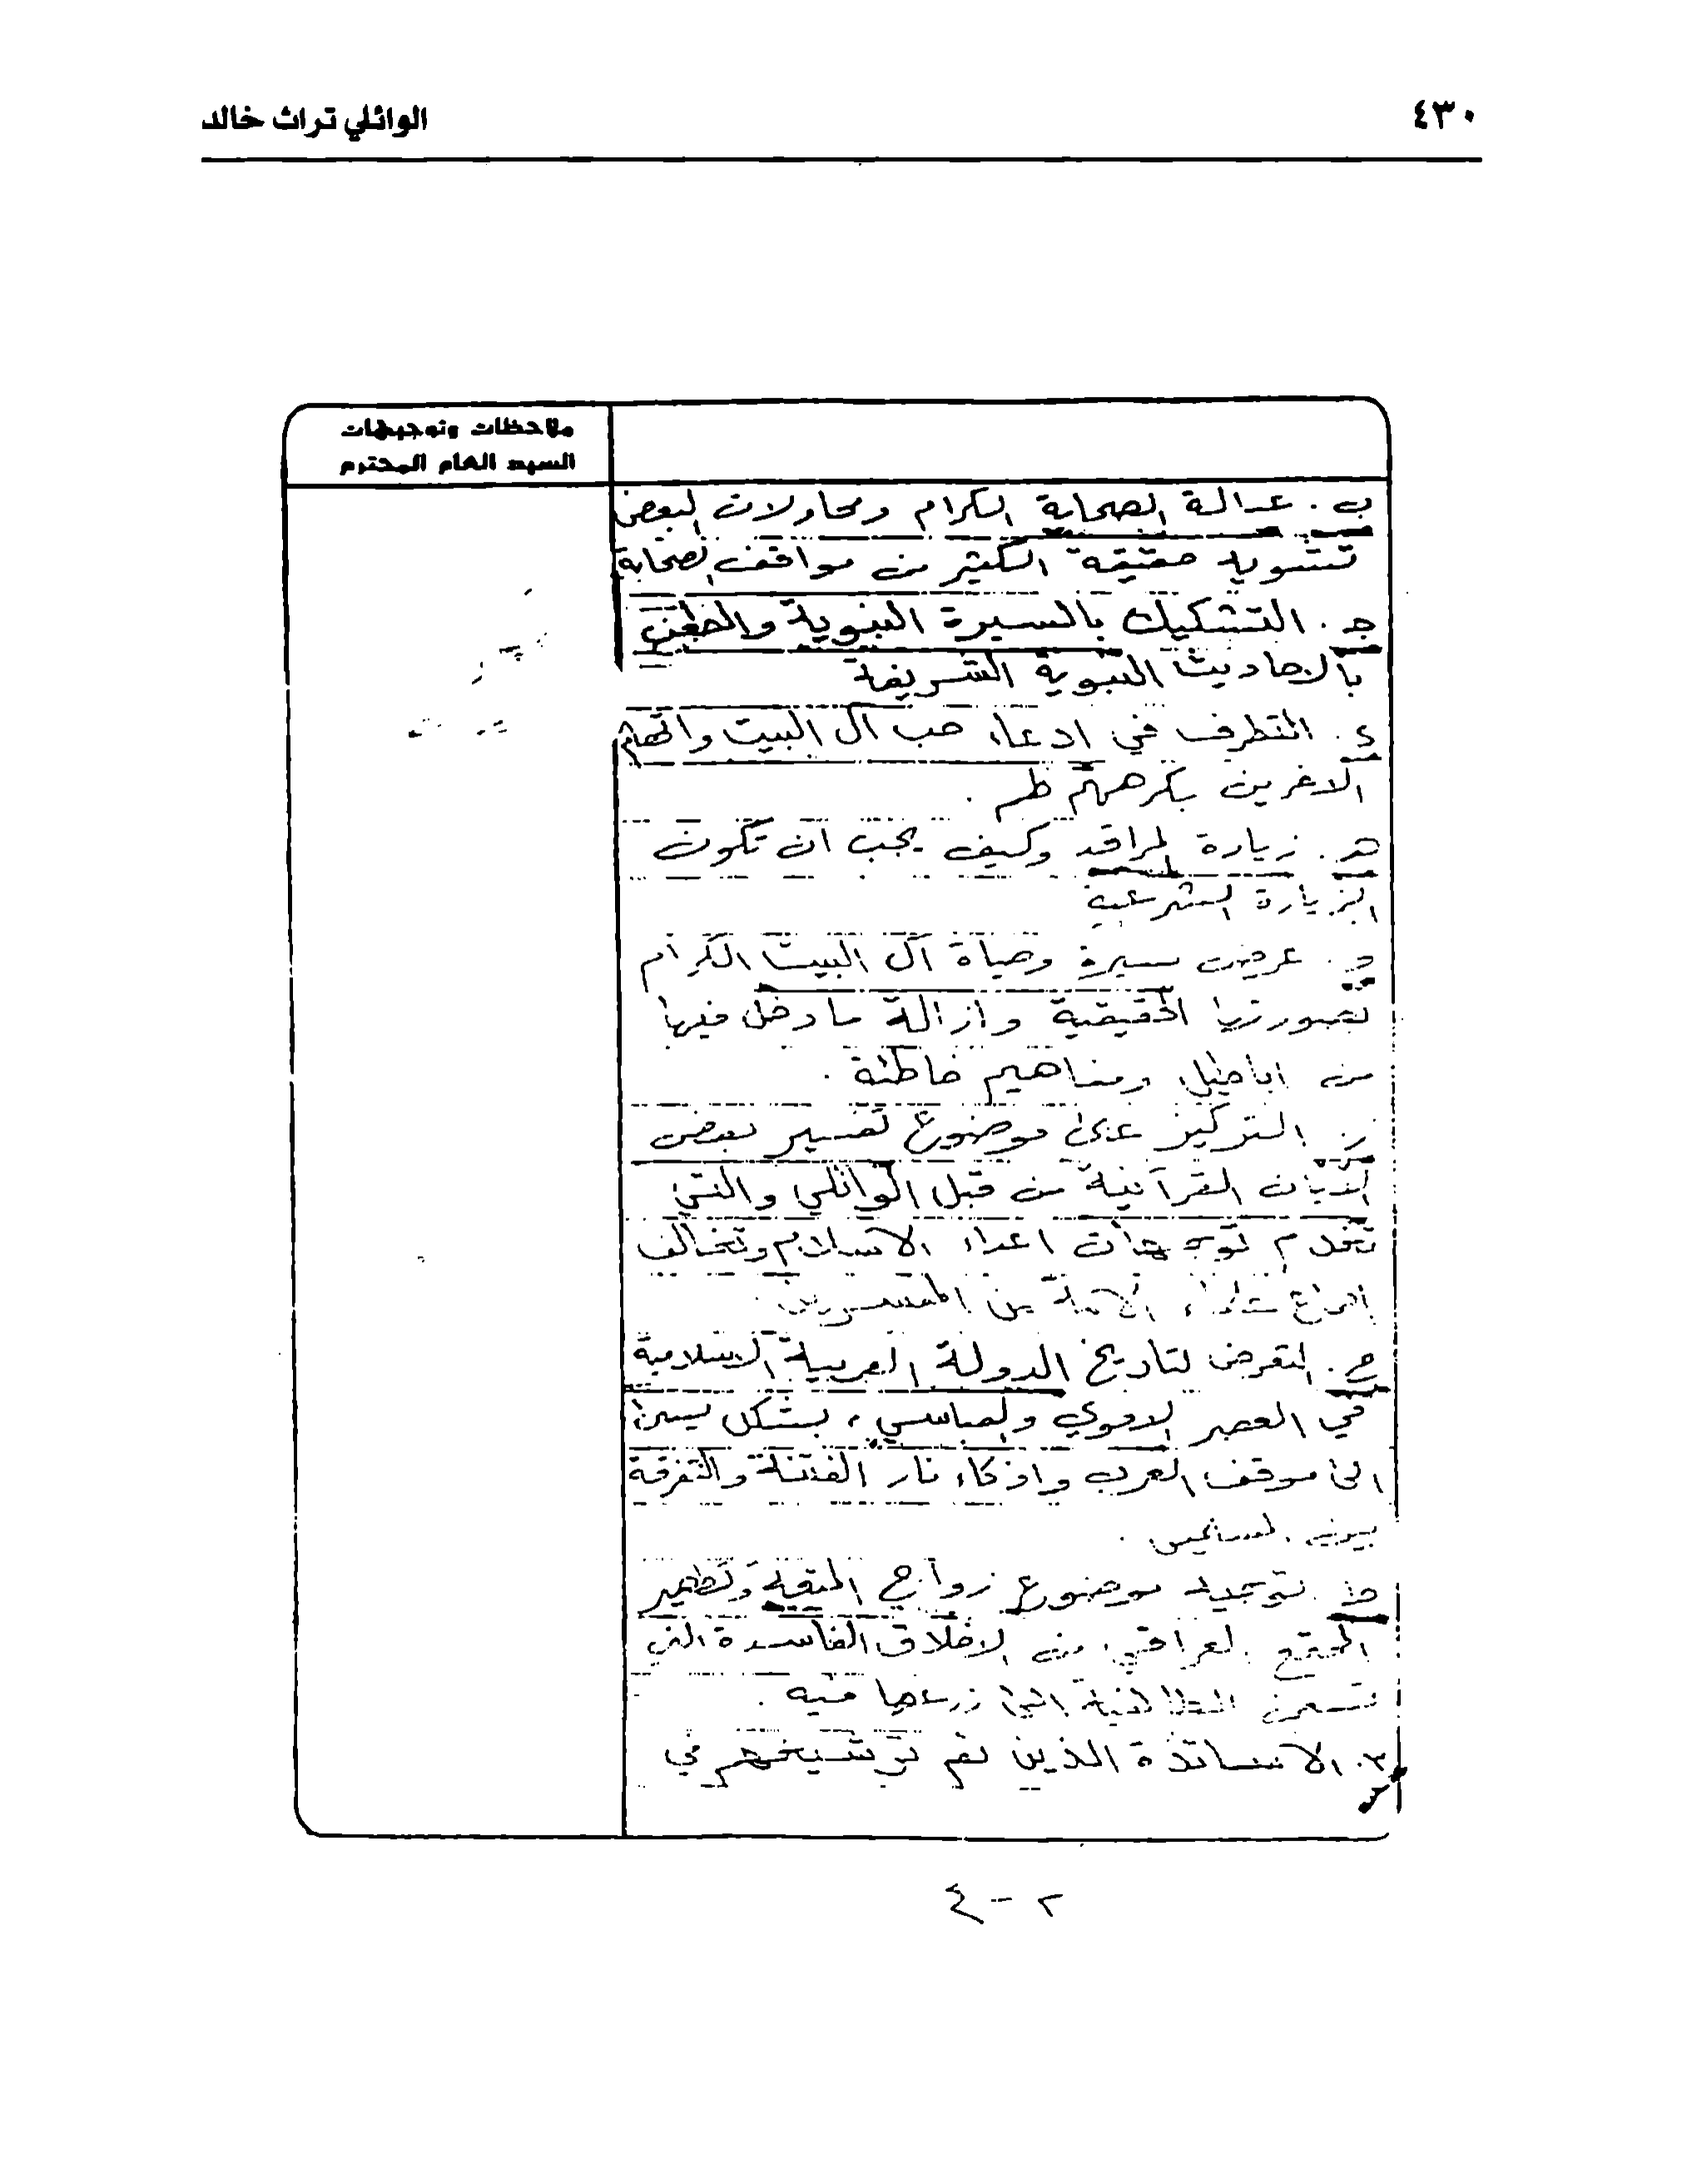 ٤٣٠
الوائلي تراث خالد
ملاحظات وتوجيهات
السيد العام المحترم
ب. عدالة الصحابة الكرام ومحاولات البعض
تشويه حقيقة الكثير من مواقف الصحابة
جـ. التشكيك بالسيرة النبوية والطعن
بالاحاديث النبوية الشريفة
د. التطرف في ادعاء حب آل البيت واتهام
الاخرين بكرههم لهم.
هـ. زيارة المراقد وكيف يجب ان تكون
الزيارة الشرعية
و. عرض سيرة وحياة آل البيت الكرام
بصورتها الحقيقية وازالة ما دخل فيها
من اباطيل ومفاهيم خاطئة.
ز. التركيز على موضوع تفسير بعض
الآيات القرآنية من قبل الوائلي والتي
تخدم توجهات اعداء الاسلام وتخالف
اجماع علماء الامة من المفسرين.
ح. التعرض لتاريخ الدولة العربية الاسلامية
في العصر الاموي والعباسي، بشكل يسيئ
الى موقف العرب واذكاء نار الفتنة والتفرقة
بين المسلمين.
ط. موضوع زواج المتعة وتطهير
المجتمع العراقي من الاخلاق الفاسدة التي
زرعها فيه.
٣. الاساتذة الذين تم ترشيحهم في
٢-٤